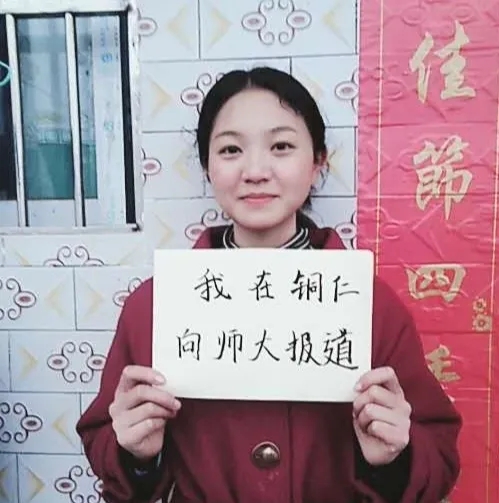 我在铜仁
向师大报道
佳節四